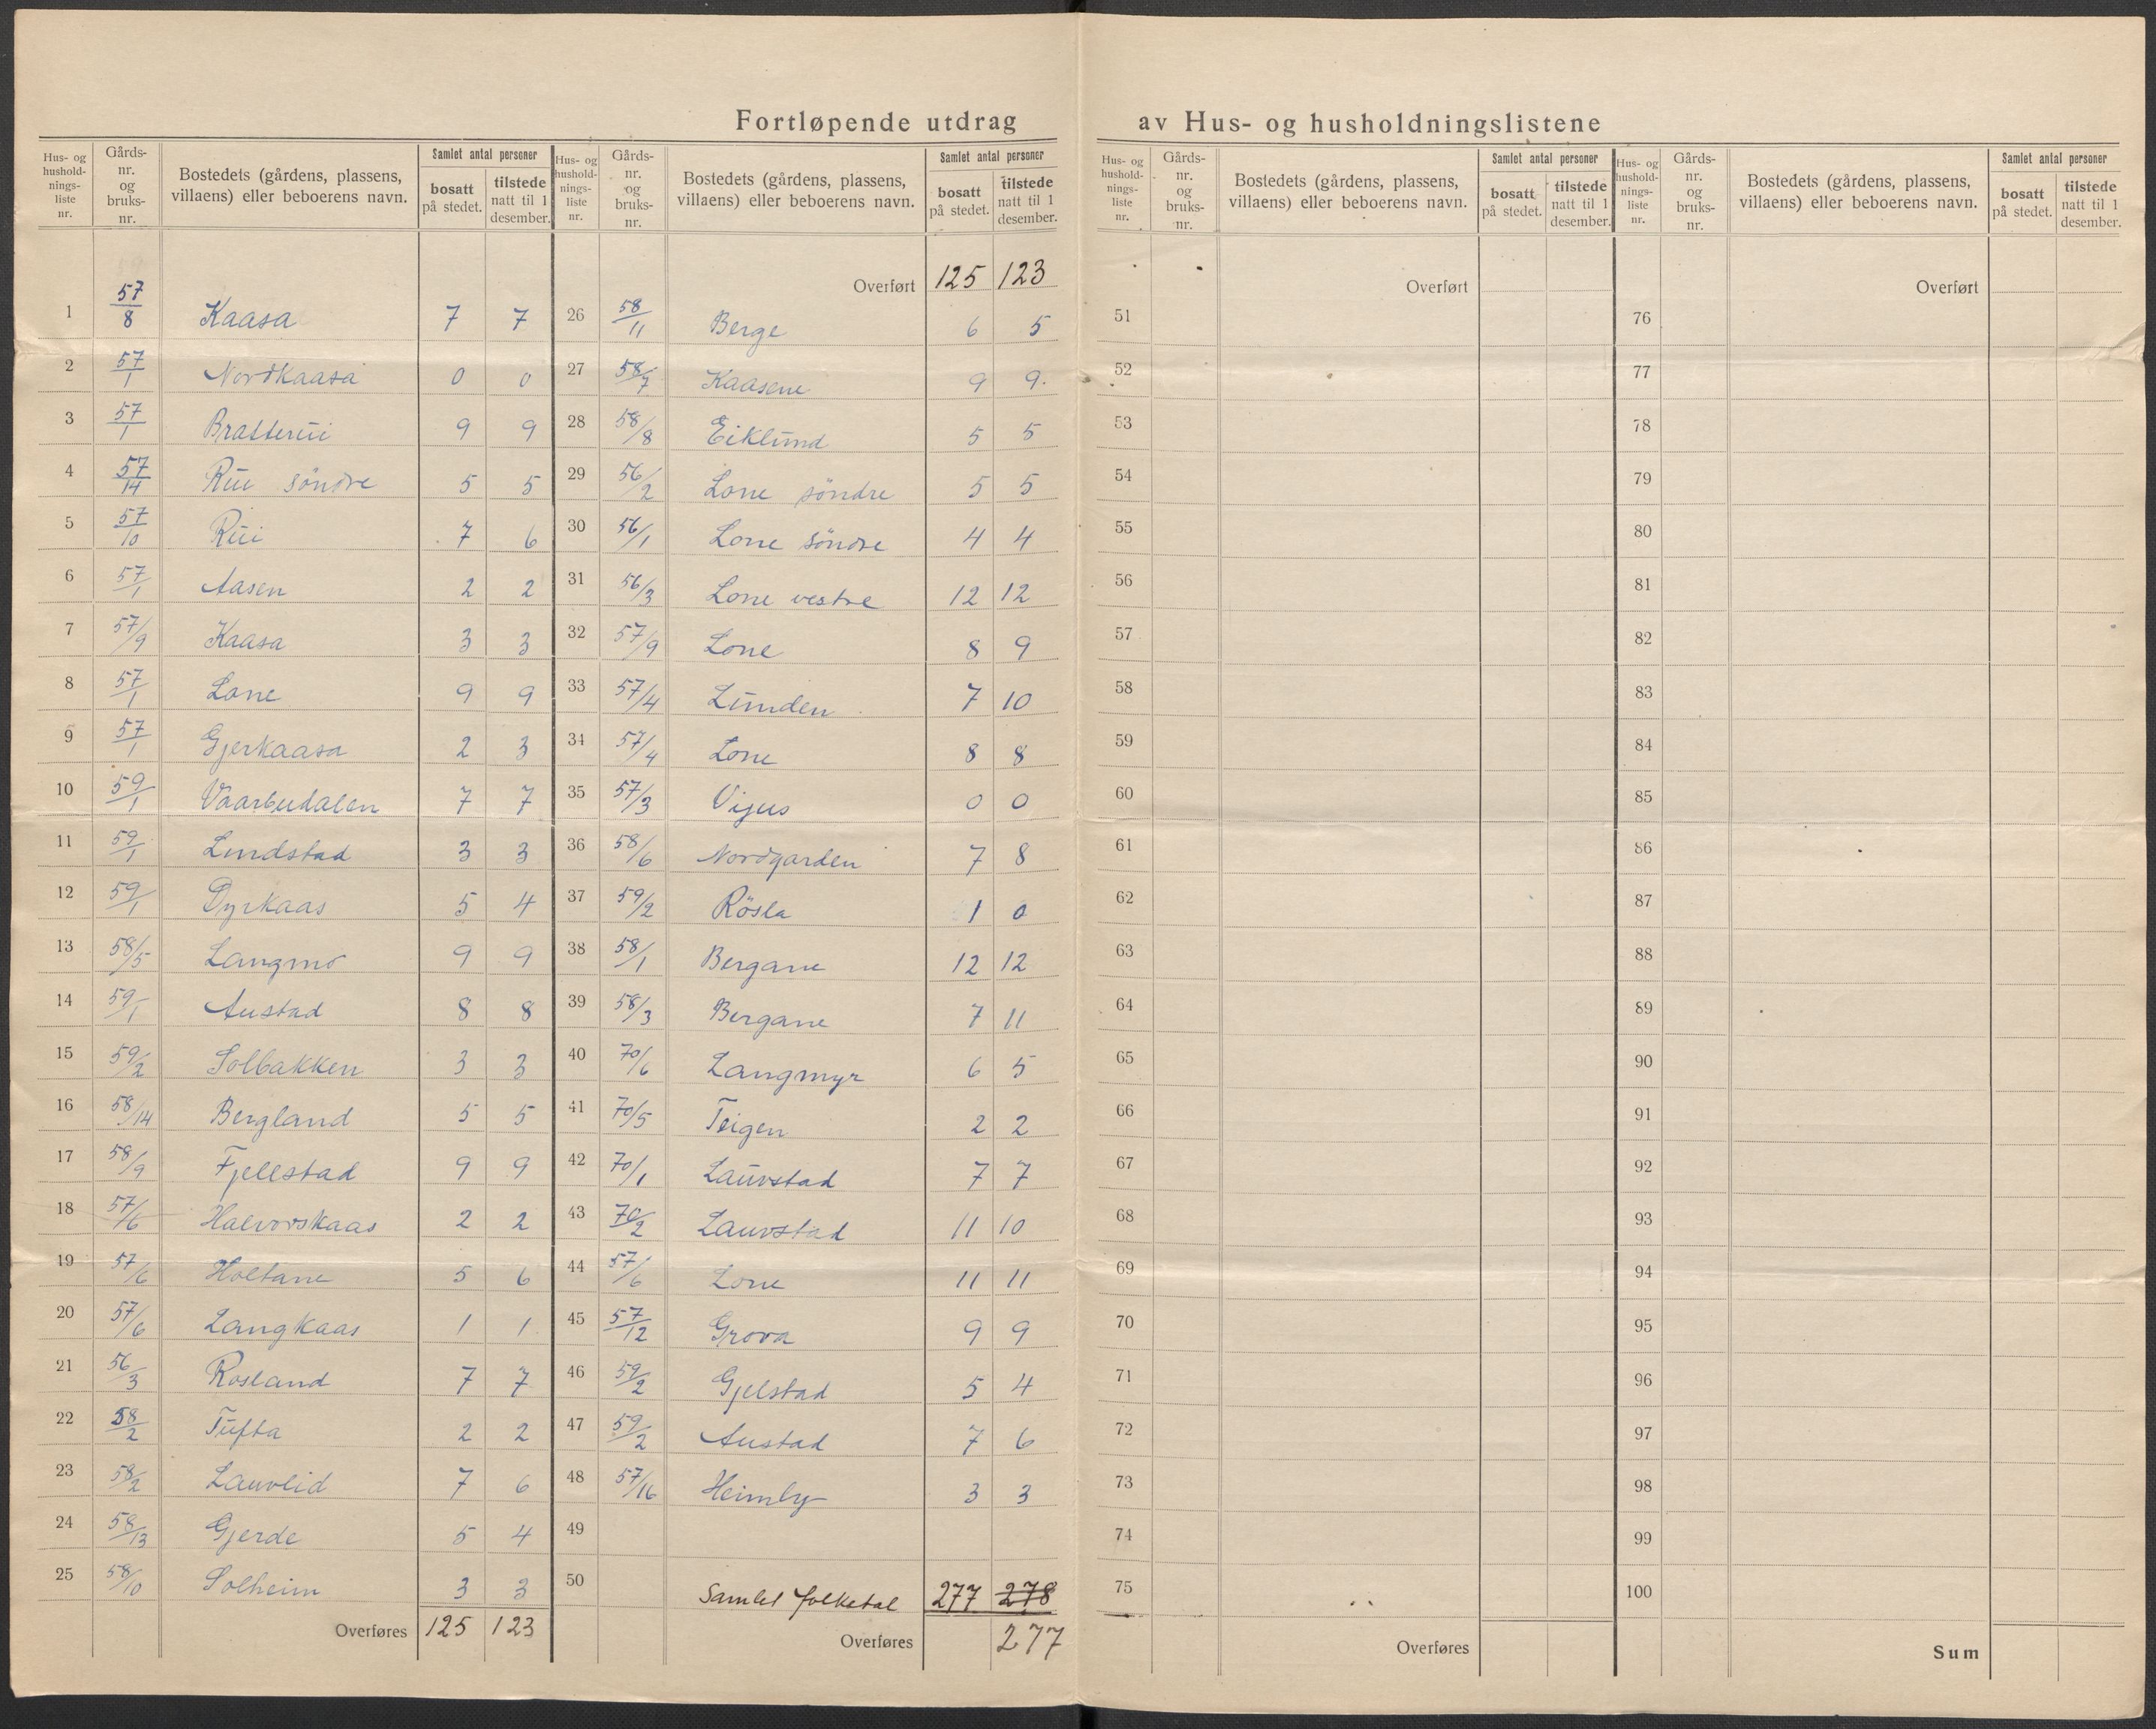 Fortløpende utdrag av Hus- og husholdningslistene
Hus- og hushold-nings-liste nr. Gårds-nr. og bruks-nr. Bostedets (gårdens, plassens, villaens) eller beboerens navn. Samlet antal personer bosatt på stedet. tilstede natt til 1 desember.
1 57/8 Kaasa 7 7
2 57/1 Nordkaasa 0 0
3 57/1 Bratterui 9 9
4 57/14 Rui söndre 5 5
5 57/10 Rui 7 6
6 57/1 Aasen 2 2
7 57/9 Kaasa 3 3
8 57/1 Lone 9 9
9 57/1 Gjerkaasa 2 3
10 59/1 Vaarbudalen 7 7
11 59/1 Lundstad 3 3
12 59/1 Dyrkaas 5 4
13 58/5 Langmo 9 9
14 59/1 Austad 8 8
15 59/2 Solbakken 3 3
16 58/14 Bergland 5 5
17 58/9 Fjellstad 9 9
18 57/6 Halvorskaas 2 2
19 57/6 Holtane 5 6
20 57/6 Langkaas 1 1
21 56/3 Rosland 7 7
22 58/2 Tufta 2 2
23 58/2 Lauvlid 7 6
24 58/13 Gjerde 5 4
25 58/10 Solheim 3 3
Overføres 125 123
Hus- og hushold-nings-liste nr. Gårds-nr. og bruks-nr. Bostedets (gårdens, plassens, villaens) eller beboerens navn. Samlet antal personer bosatt på stedet. tilstede natt til 1 desember.
Overført 125 123
26 58/11 Berge 6 5
27 58/7 Kaasene 9 9.
28 58/8 Eiklund 5 5
29 56/2 Lone söndre 5 5
30 56/1 Lone söndre 4 4
31 56/3 Lone vestre 12 12
32 57/9 Lone 8 9
33 57/4 Lunden 7 10
34 57/4 Lone 8 8
35 57/3 Vijus 0 0
36 58/6 Nordgarden 7 8
37 59/2 Rösla 1 0
38 58/1 Bergane 12 12
39 58/3 Bergane 7 11
40 70/6 Langmyr 6 5
41 70/5 Teigen 2 2
42 70/1 Lauvstad 7 7
43 70/2 Lauvstad 11 10
44 57/6 Lone 11 11
45 57/12 Grova 9 9
46 59/2 Gjelstad 5 4
47 59/2 Austad 7 6
48 57/16 Heimly 3 3
49
50 Samlet folketal 277 278
Overføres 277
Hus- og hushold-nings-liste nr. Gårds-nr. og bruks-nr. Bostedets (gårdens, plassens, villaens) eller beboerens navn. Samlet antal personer bosatt på stedet. tilstede natt til 1 desember.
Overført
51
52
53
54
55
56
57
58
59
60
61
62
63
64
65
66
67
68
69
70
71
72
73
74
75
Overføres
Hus- og hushold-nings-liste nr. Gårds-nr. og bruks-nr. Bostedets (gårdens, plassens, villaens) eller beboerens navn. Samlet antal personer bosatt på stedet. tilstede natt til 1 desember.
Overført
76
77
78
79
80
81
82
83
84
85
86
87
88
89
90
91
92
93
94
95
96
97
98
99
100
Sum